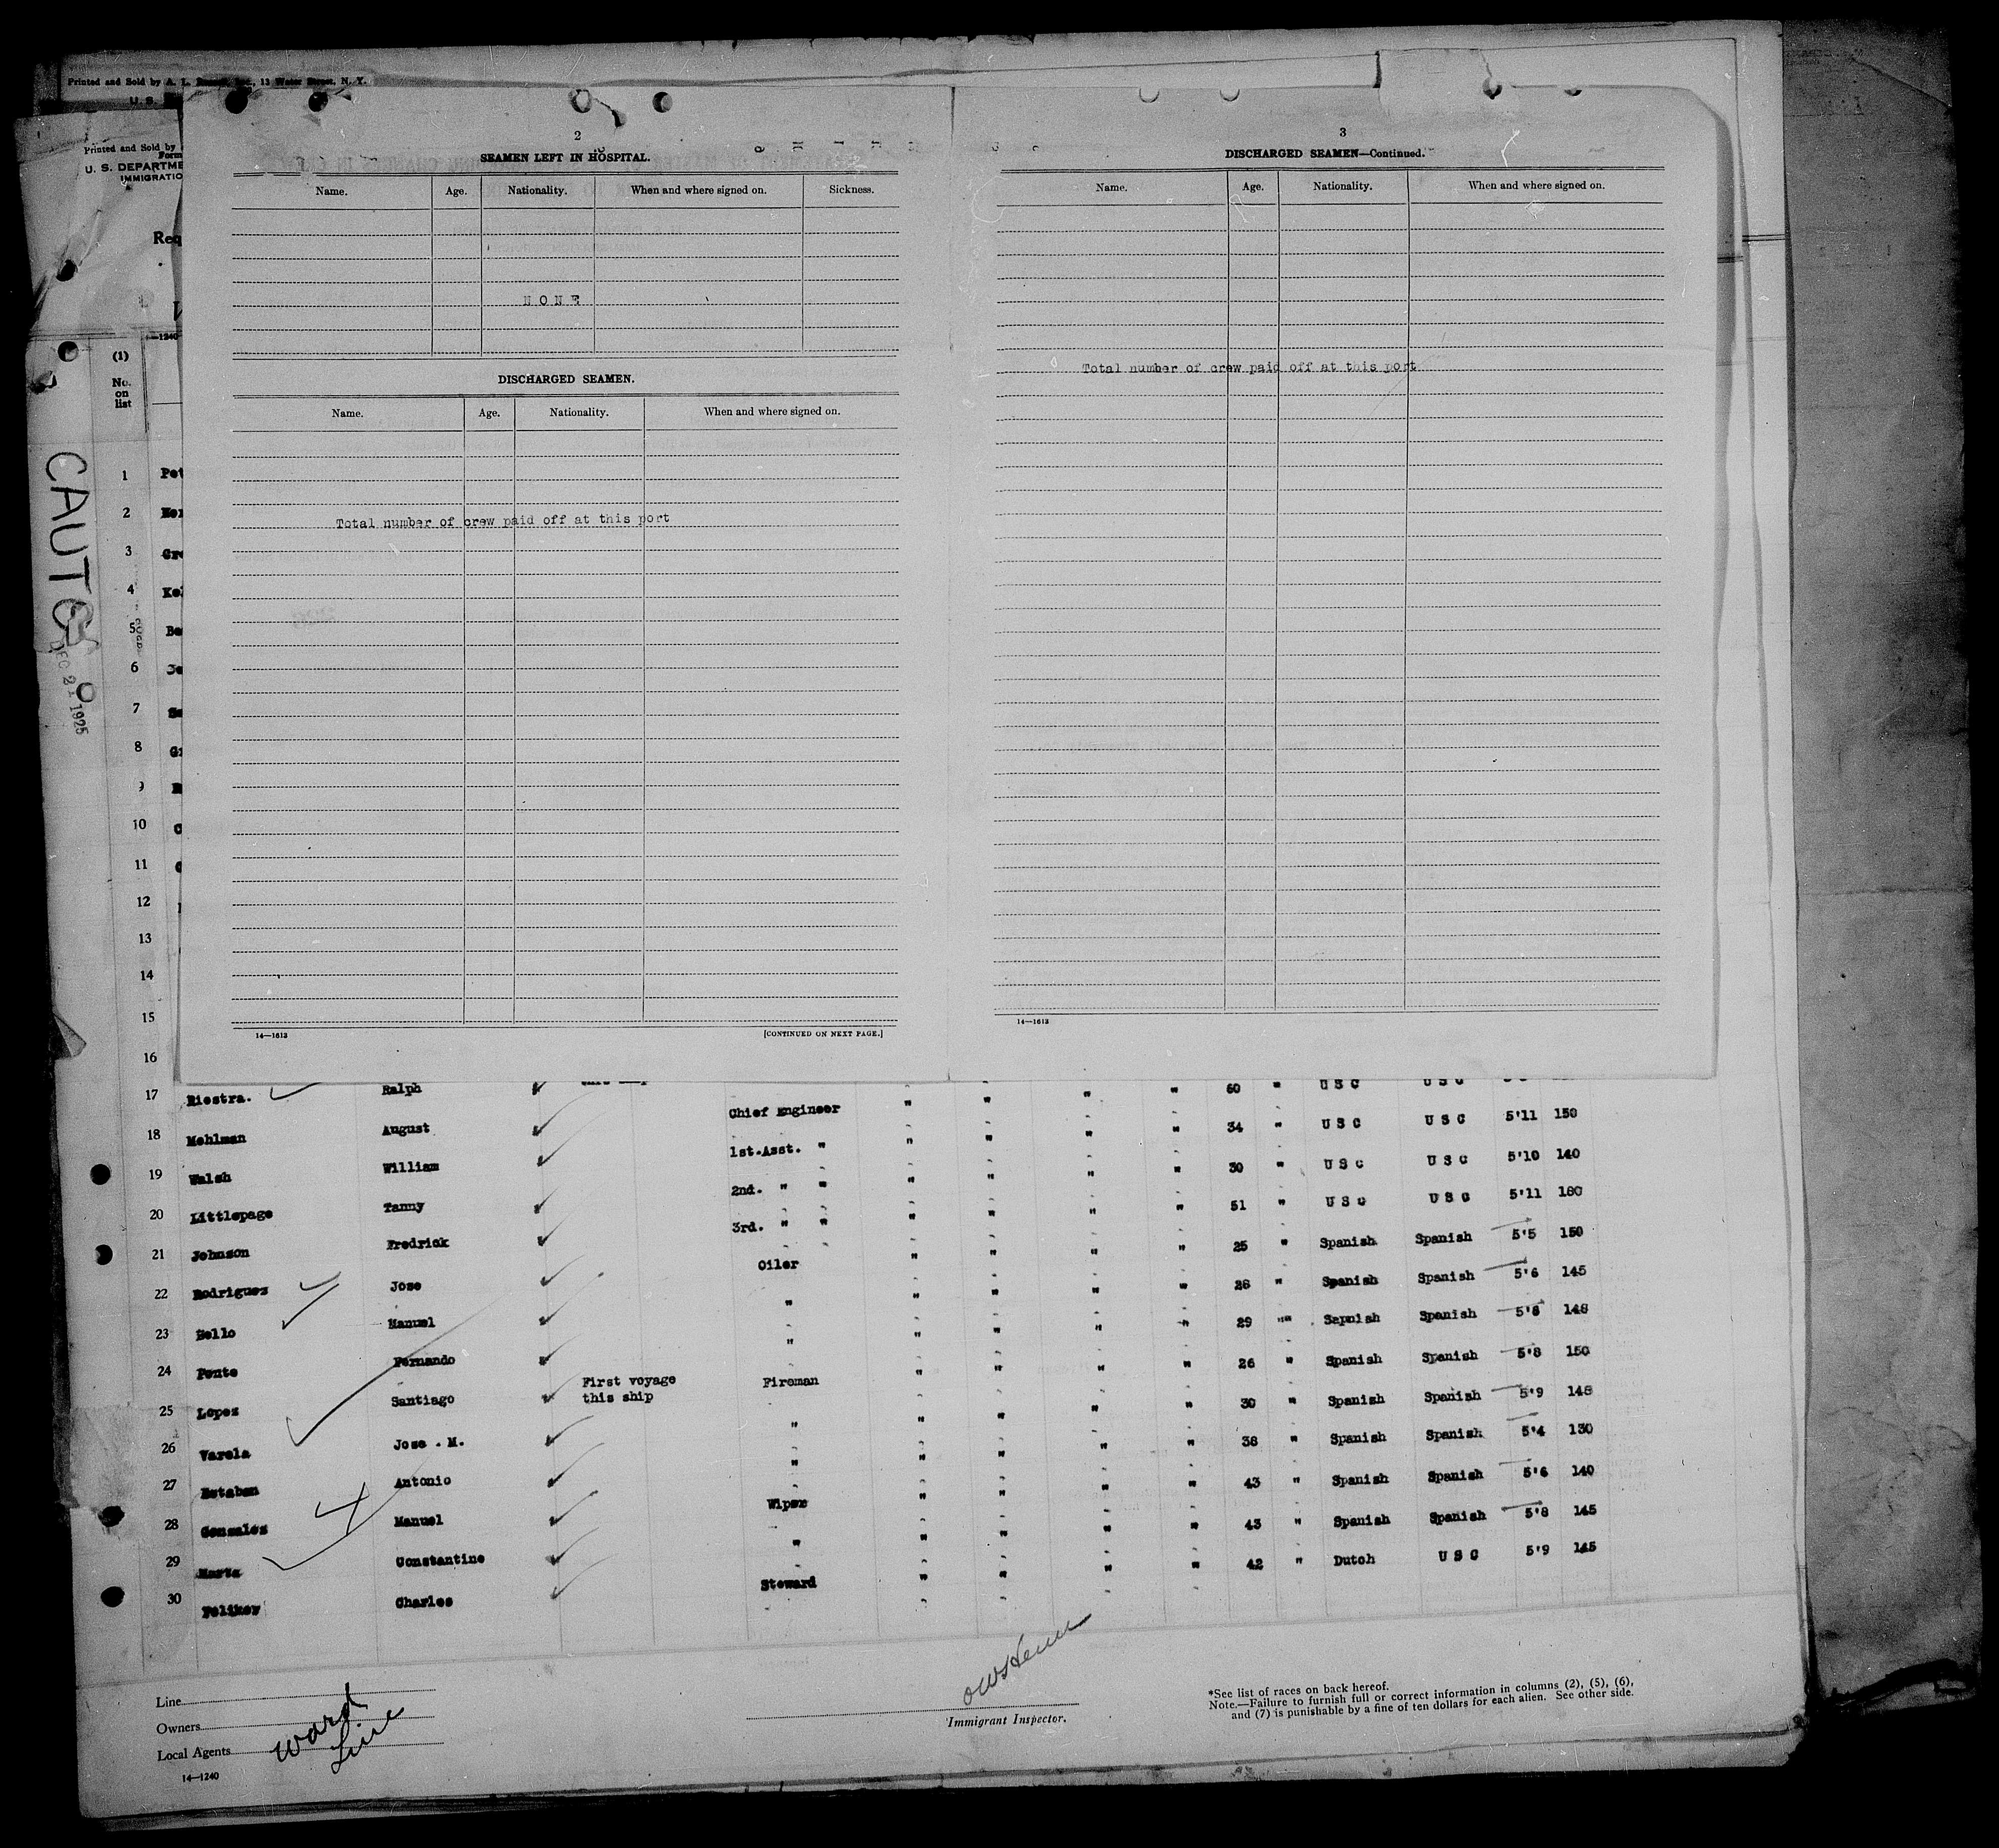 Printed and Sold by A. L. Inc., 13 Water Street, N. Y.
U. S.
Printed and Sold by
Form
U. S. DEPARTME
IMMIGRATIO
Req
—1240
(1)
No.
on
list
CAUTO
DEC 21 1925
2
SEAMEN LEFT IN HOSPITAL.
Name. Age. Nationality. When and where signed on. Sickness.
NONE
DISCHARGED SEAMEN.
Name. Age. Nationality. When and where signed on.
Total number of crew paid off at this port
14—1613 [CONTINUED ON NEXT PAGE.]
3
DISCHARGED SEAMEN—Continued.
Name. Age. Nationality. When and where signed on.
Total number of crew paid off at this port
14—1613
1 Pet
2
3 Gre
4 Kel
5 Be
6 Jo
7
8 Gr
9
10
11
12
13
14
15
16
17 Riestra. Ralph
18 Mehlman August Chief Engineer " " " " 60 " U S C U S C
19 Walsh William 1st.Asst. " " " " " 34 " U S C U S C 5'11 150
20 Littlepage Tanny 2nd. " " " " " " 30 " U S C U S C 5'10 140
21 Johnson Fredrick 3rd. " " " " " " 51 " U S C U S C 5'11 180
22 Rodriguez Jose Oiler " " " " 25 " Spanish Spanish 5'5 150
23 Bello Manuel " " " " " 28 " Spanish Spanish 5'6 145
24 Ponte Fernando " " " " " 29 "" Sapnish Spanish 5'8 148
25 Lopez Santiago First voyage this ship Fireman " " " " 26 " Spanish Spanish 5'8 150
26 Varela Jose . M. " " " " " 30 " Spanish Spanish 5'9 148
27 Estaban Antonio " " " " " 38 " Spanish Spanish 5'4 130
28 Gonzales Manuel Wiper " " " " 43 " Spanish Spanish 5'6 140
29 Constantine " " " " " 43 " Spanish Spanish 5'8 145
30 Charles Steward " " " " 42 " Dutch U S C 5'9 145
Line
Owners
Local Agents
Ward
Line
14—1240
Immigrant Inspector.
*See list of races on back hereof.
Note.—Failure to furnish full or correct information in columns (2), (5), (6),
and (7) is punishable by a fine of ten dollars for each alien. See other side.